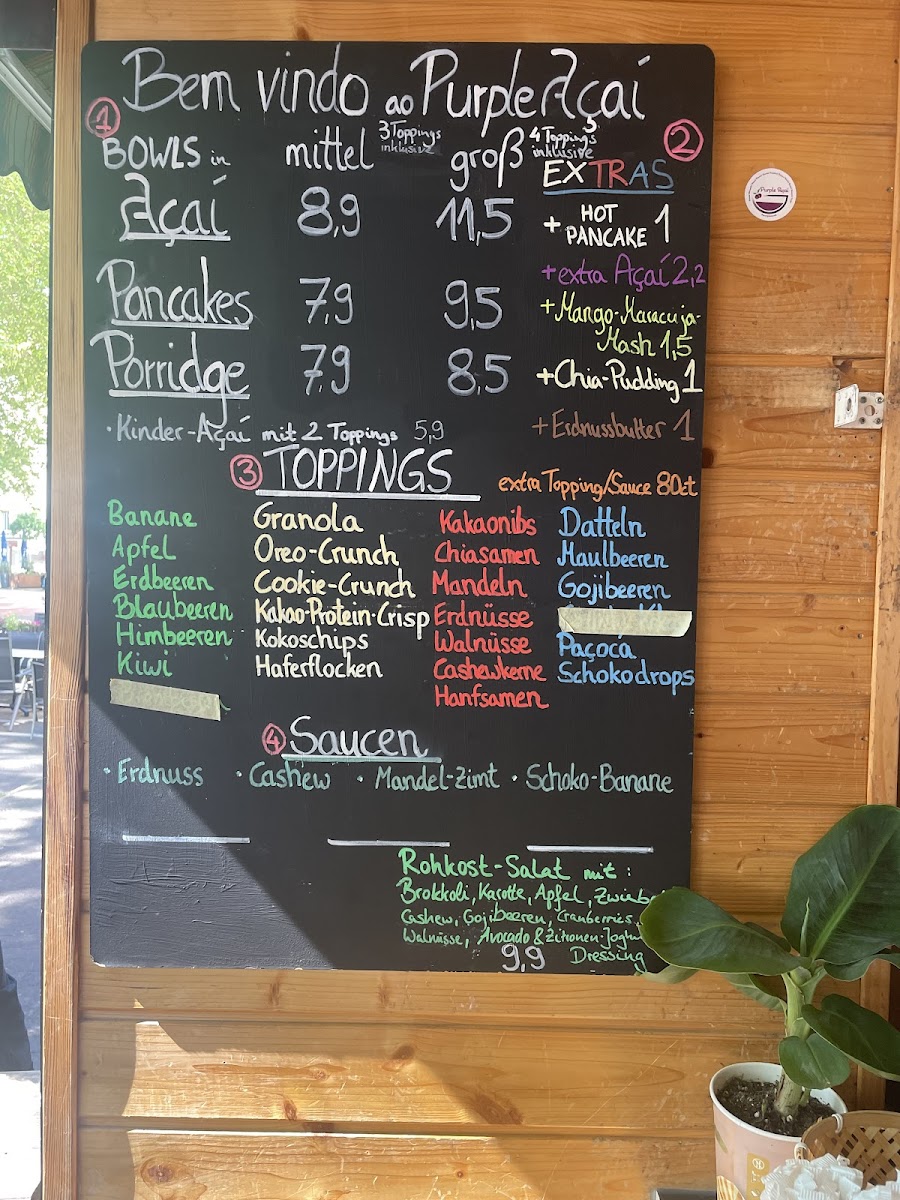 Bem vindo ao Purple Açaí
1
BOWLS in
mittel
3 Toppings
inklusive
groß
4 Toppings
inklusive
2
EXTRAS
Açaí 8,9 11,5
+ HOT
PANCAKE 1
+extra Açaí 2,2
Pancakes 7,9 9,5
+Mango-Maracuja-
Mash 1,5
Porridge 7,9 8,5
+Chia-Pudding 1
·Kinder-Açaí mit 2 Toppings 5,9
+Erdnussbutter 1
3 TOPPINGS
extra Topping/Sauce 80ct
Banane
Apfel
Erdbeeren
Blaubeeren
Himbeeren
Kiwi
Granola
Oreo-Crunch
Cookie-Crunch
Kakao-Protein-Crisp
Kokoschips
Haferflocken
Kakaonibs
Chiasamen
Mandeln
Erdnüsse
Walnüsse
Cashewkerne
Hanfsamen
Datteln
Maulbeeren
Gojibeeren
Paçoca
Schokodrops
4 Saucen
· Erdnuss · Cashew · Mandel-Zimt · Schoko-Banane
Rohkost-Salat mit:
Brokkoli, Karotte, Apfel,
Cashew, Gojibeeren, Cranberries
Walnüsse, Avocado & Zitronen-
9,9 Dressing
Purple Açaí